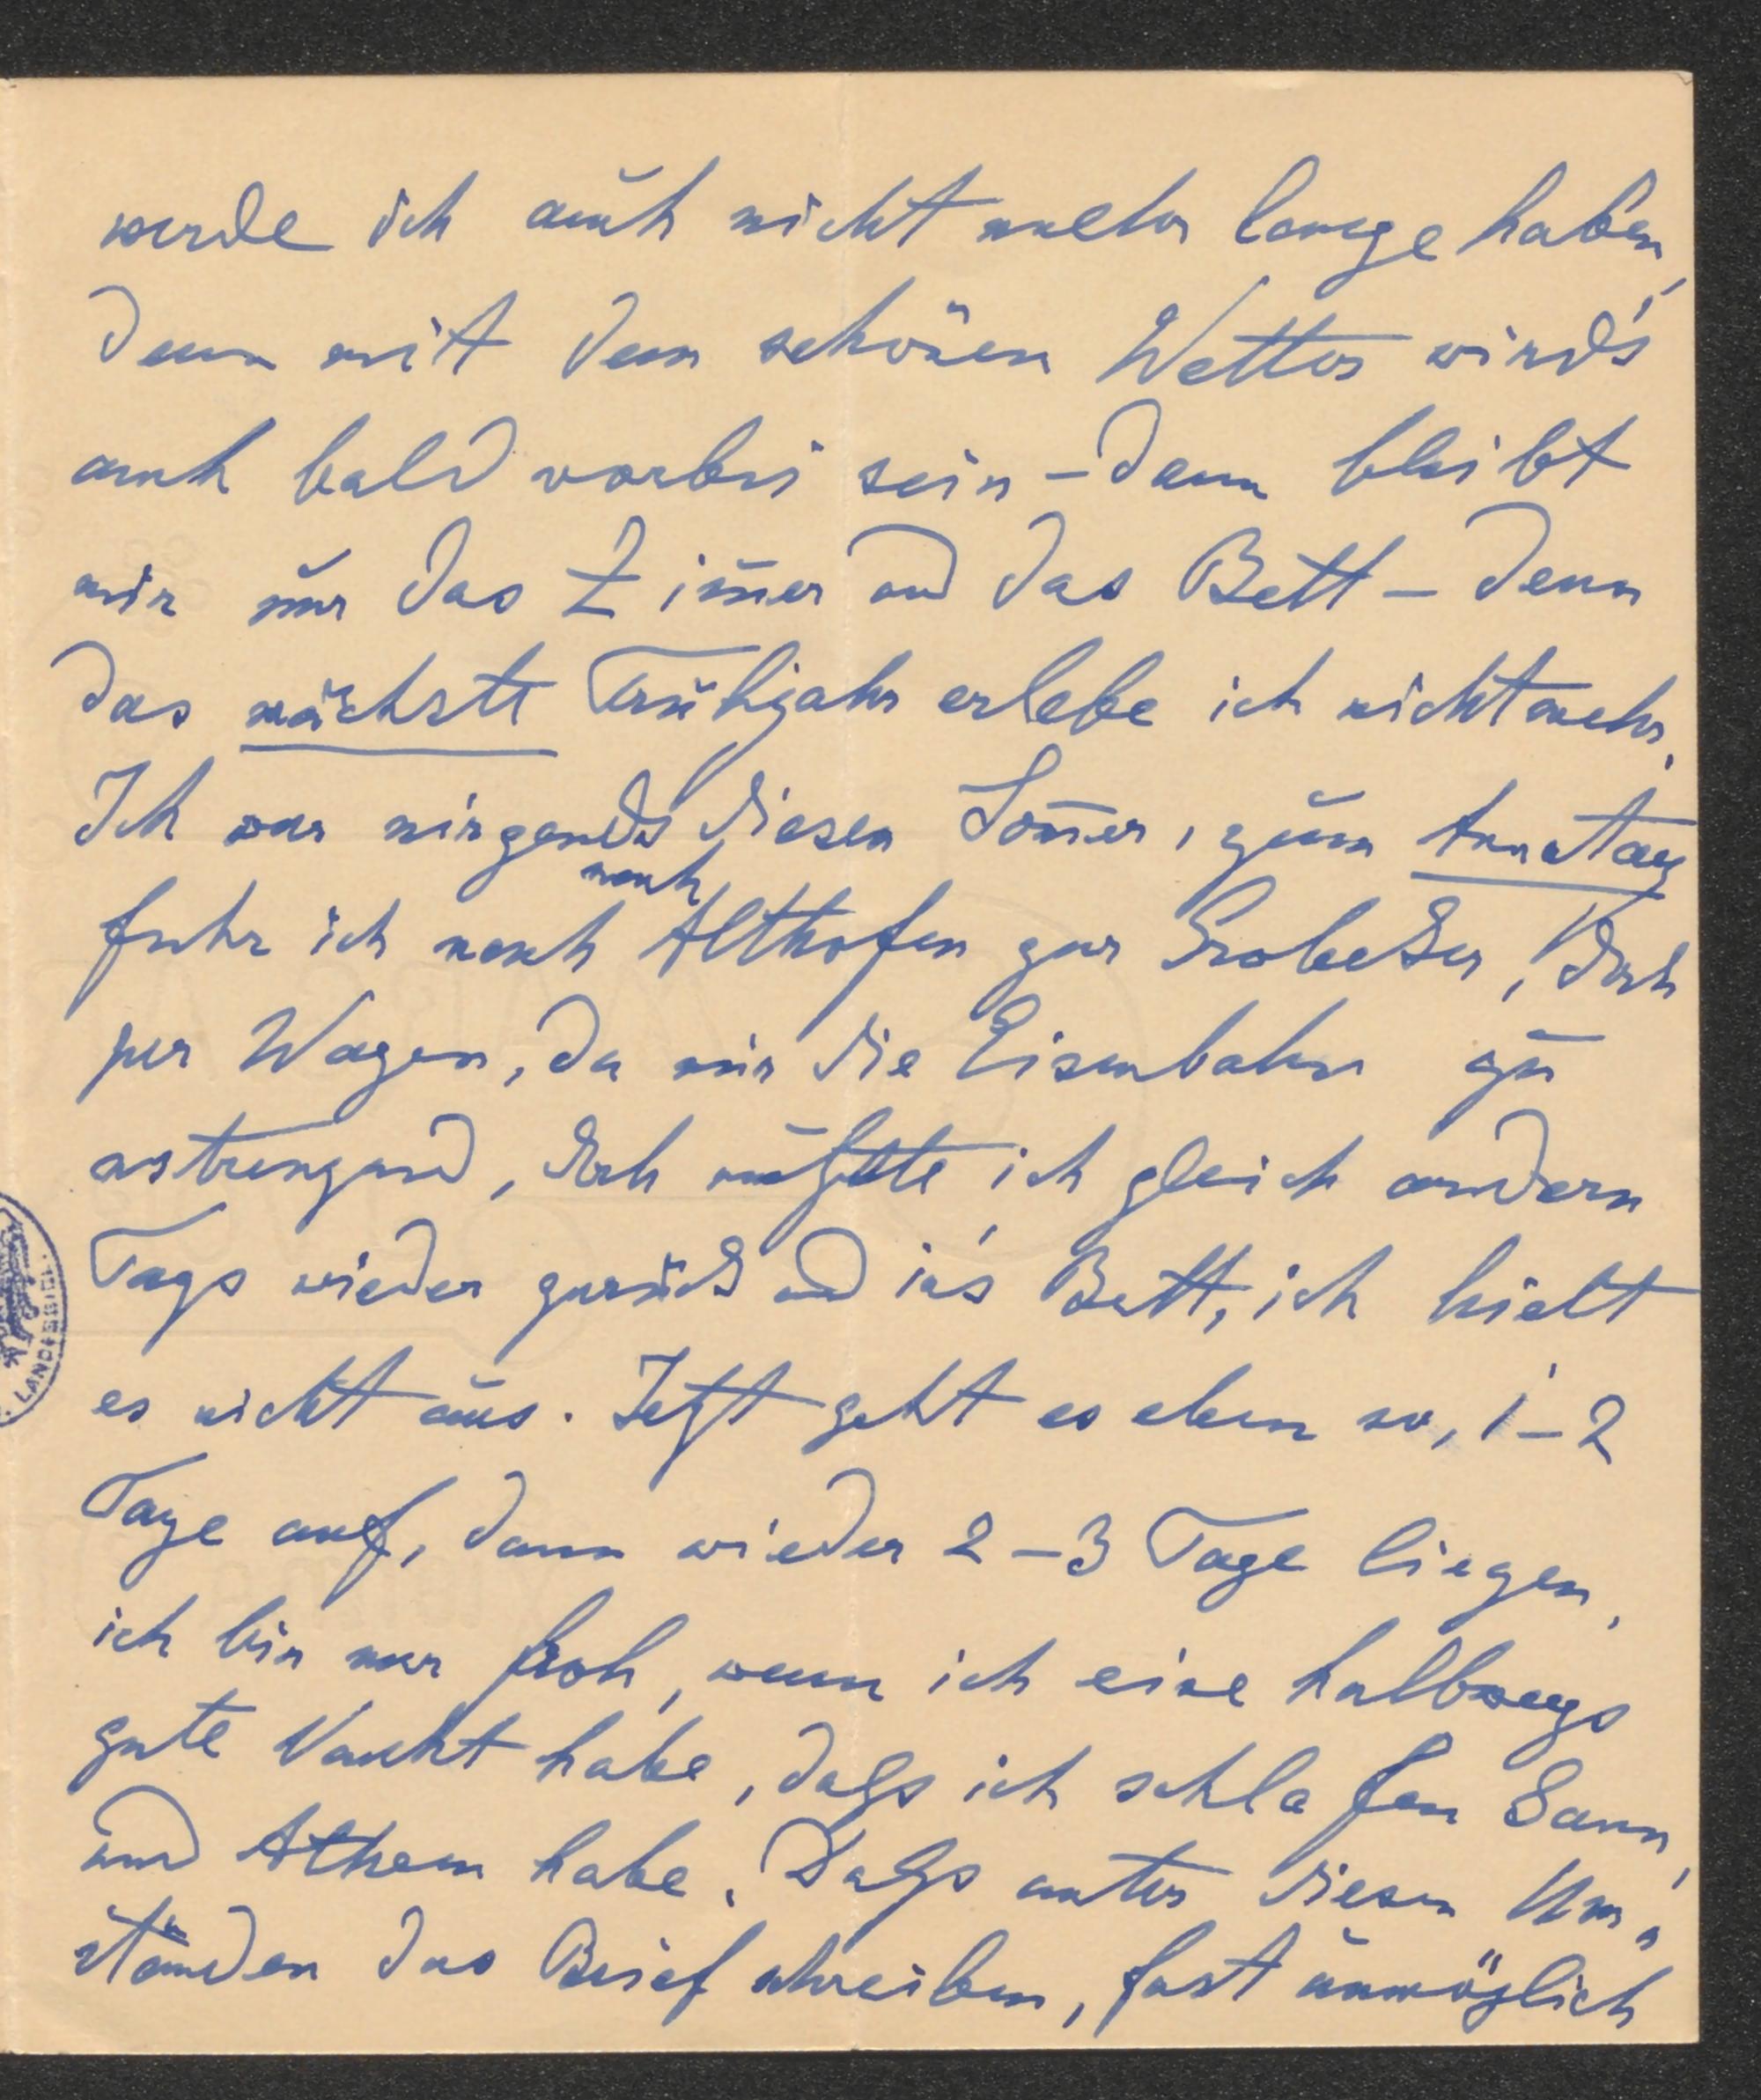 werde ich auch nicht mehr lange haben,
denn mit dem schönen Wetter wird's
auch bald vorbei sein – dann bleibt
mir nur das Zim̅er und das Bett – denn
das nächste Frühjahr erlebe ich nicht mehr.
Ich war nirgends diesen Som̅er, zum Annatag
noch
fuhr ich nach Althofen zur, doch
per Wagen, da mir die Eisenbahn zu
anstrengend, doch mußte ich gleich andern
Tags wieder zurück und in's Bett, ich hielt
es nicht aus. Jetzt geht es eben so, 1–2
Tage auf, dann wieder 2–3 Tage liegen,
ich bin nur froh, wenn ich eine halbwegs
gute Nacht habe, daß ich schlafen kann,
und Athem habe. Daß unter diesen Um„
ständen das Briefschreiben, fast unmöglich
LANDESBIBL.